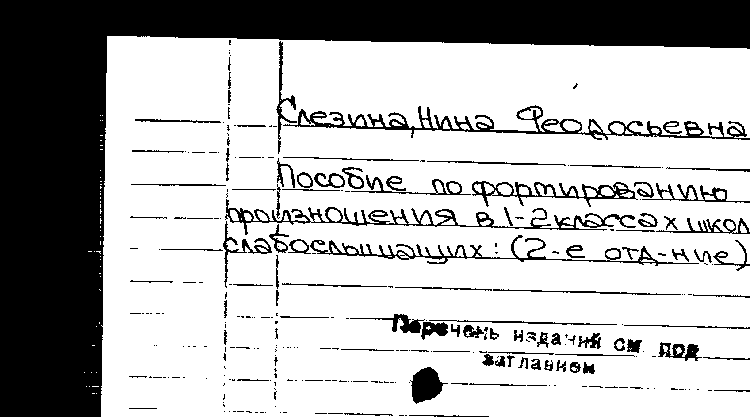 Слезина, Нина Феодосьевна
Пособие по формированию
произношения в 1-2 классах школ
слабослышащих: (2-е отд-ние)
Перечень изданий см под
заглавием